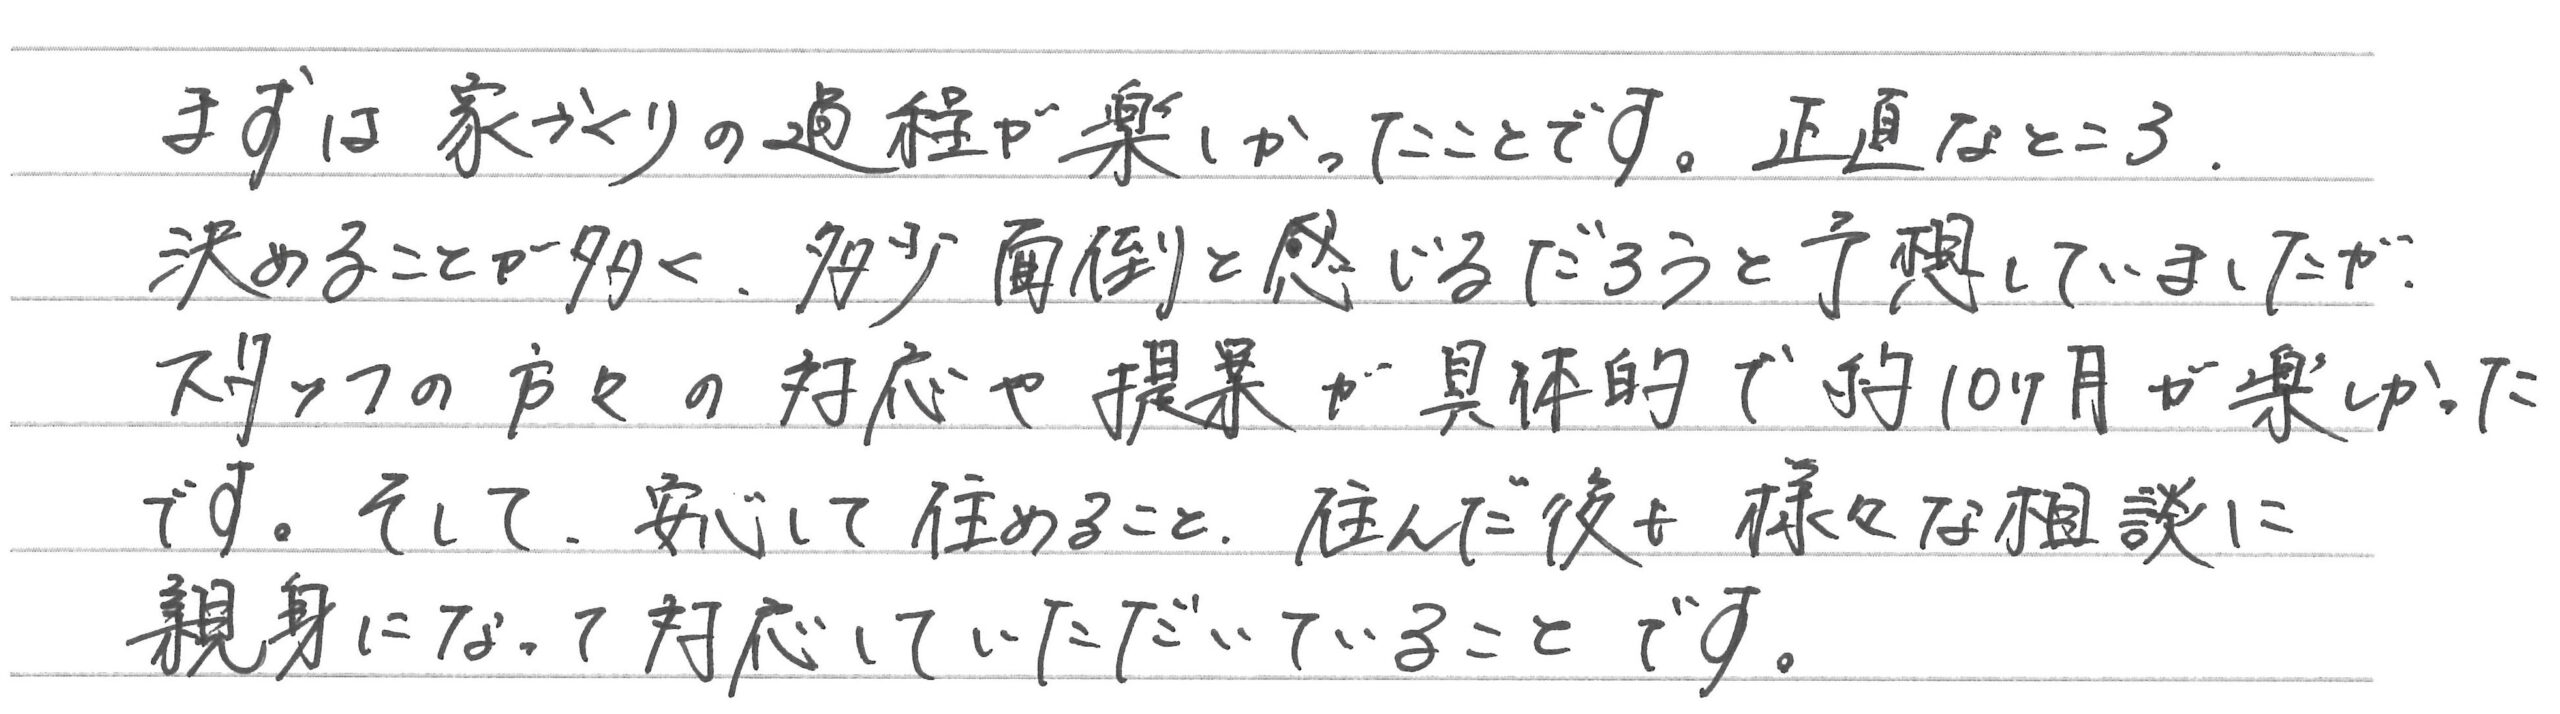 まずは家づくりの過程が楽しかったことです。正直なところ、
決めることが多く、多少面倒と感じるだろうと予想していましたが、
スタッフの方々の対応や提案が具体的で約10ヶ月が楽しかった
です。そして、安心して住めること、住んだ後も様々な相談に
親身になって対応していただいていることです。